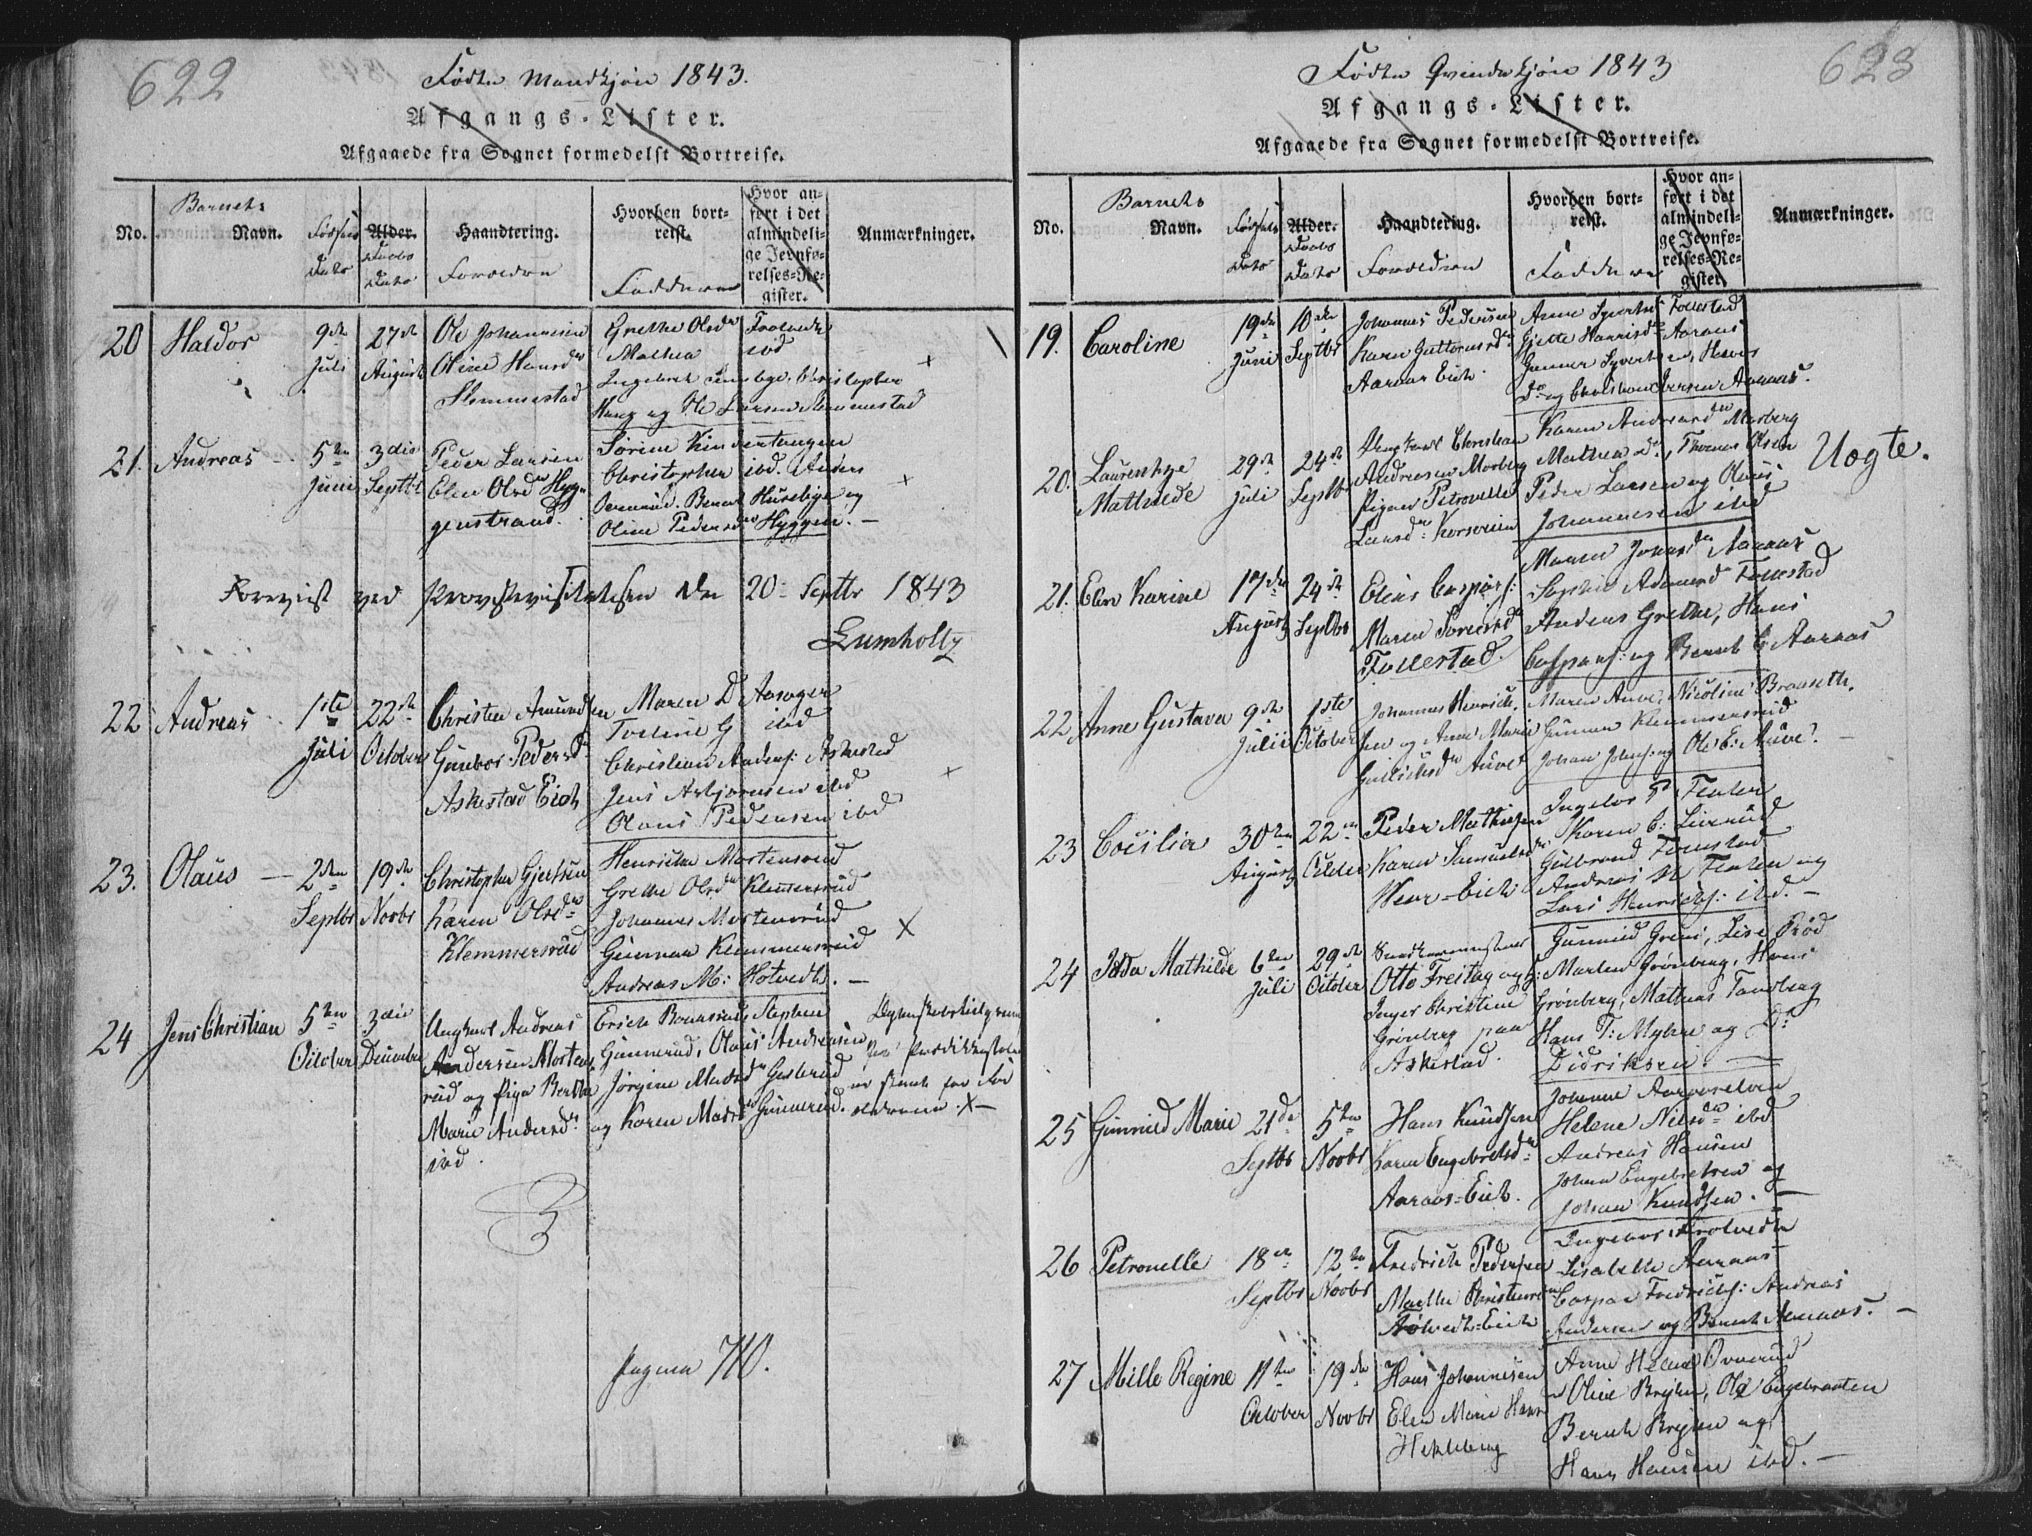 622
Fødte Mandkjøn 1843.
Afgangs-Lister.
Afgaaede fra Sognet formedelst Bortreise.
No.
Barnets
Navn.
Fødsels
Dato
Alder.
Daabs
Dato
Haandtering.
Forældre
Hvorhen bort-
reist.
Faddere
Hvor an-
ført i det
almindeli-
ge Jevnfø-
relses-Re-
gister.
Anmærkninger.
20 Haldor
9de
Juli
27de
August
Ole Johannesen
Oline Hansdr
Slemmestad
Grethe Olsdr
Mathea ibd
Ingebret Christopher
Haug og Ole Larsen Slemmestad
21. Andreas
5te
Juni
3die
Septbr
Peder Larsen
Elen Olsdr Hyg-
genstrand.
Sørine Kinnertangen
Christopher ibd. Anders
Bernt Huseby og
Oline Pedersdr Hyggen. —
Foreviist ved Provstevisitatsen den 20 Septbr 1843
Lumholtz
22 Andreas
1ste
Juli
22de
October
Christen Amundsen
Gunbor Pedersdr
Askestad Eich
Maren D Aasager
Torline G ibd
Christian Anders: Askestad
Jens Asbjørnsen ibd
Olaus Pedersen ibd
23. Olaus —
2den
Septbr
19de
Novbr
Christopher Gjertsen
Karen Olsdr
Klemmersrud
Henrikka Mortensrud
Grethe Olsdr Klemmersrud
Johannes Mortensrud
Gunnar Klemmersrud
Andreas M: Hotvedt. —
24 Jens Christian
5te
October
3die
December
Ungkarl Andreas
Andersen Mortens
rud og Pige Berthe
Marie Andersdr
ibd.
Erich Stephen
Gunnerud, Olaus Andersen
Jørgine Madsdr Gusterud
og Karen Madsdr Gunnerud.
Pagina 710.
623
Fødte Qvindekjøn 1843
Afgangs-Lister.
Afgaaede fra Sognet formedelst Bortreise.
No.
Barnets
Navn.
Fødsels
Dato
Alder.
Daabs
Dato
Haandtering.
Forældre
Hvorhen bort-
reist.
Faddere
Hvor an-
ført i det
almindeli-
ge Jevnfø-
relses-Re-
gister.
Anmærkninger.
19. Caroline
19de
Juni
10de
Septbr
Johannes Pedersen
Karen Guttormsdr
Aaraas Eich.
Anne Syvertsdr Follestad
Gjette Harrisdr Aaraas
Gunner Syvertsen,
Do og Christian Iversen Aaraas.
20. Laurentze
Mathilde
29de
Juli
24de
Septbr
Ungkarl Christian
Andreasen Morberg
Pigen Petronelle
Larsdr: Korsveien
Karen Andreasdr Morberg
Mathea do, Thomas Olsen
Peder Larsen og Olaus
Johannesen ibd
Uægte.
21. Elen Karine
17de
August
24de
Septbr
Elias Caspars:
Maren Torersdr
Follestad.
Maren Jonasdr Aaraas
Sophie Follestad
Anders Grethe, Hans
Caspars: og Bernt C: Aaraas
22 Anne Gustava
9de
Julii
1ste
October
Johannes Henrich-
sen og Anne Marie
Gulichsdr Auvet
Maren Auve, Nicoline Braaseth,
Gunnar Klemmersrud
Johan Johns: og Ole E: Auve. —
23 Cecilia
30te
August
22de
October
Peder Mathisen
Karen Samuelsdr
Wear-Eich
Ingebor P
Karen C: Liverud
Gulbrand Follestad
Andreas og
Lars Henrichs: ibd. —
24 Idda Mathilde
6te
Juli
29de
October
Otto Freitag og H:
Inger Christine
Grønberg paa
Askestad.
Gunnild Greni, Lise Ørød
Marten Grønberg, Hans
Grønberg, Mathias Tandberg
Hans T: Myhre og D:
Didriksen. —
25 Gunnild Marie
21de
Septbr
5te
Novbr
Hans Knudsen
Karen Engebretsdr
Aaraas-Eich.
Johanne Aaroselven
Helene Nielsdr ibd
Andreas Hansen
Johan Engebretsen og
Johan Knudsen. —
26 Petronelle
18de
Septbr
12te
Novbr
Fredrich Pedersen
Marthe Christensdr
Ingebor
Lisabeth Aaraas
Caspar Fredrichs: Andreas
Andersen og Bernt Aaraas. —
27 Mille Regine
11te
October
19de
Novbr
Hans Johannesen
Elen Marie Hansdr
Hekleberg
Anne Helene Overrud
Oline Brejen, Ole Engebraaten
Bernt Brejen og
Hans Hansen ibd. —